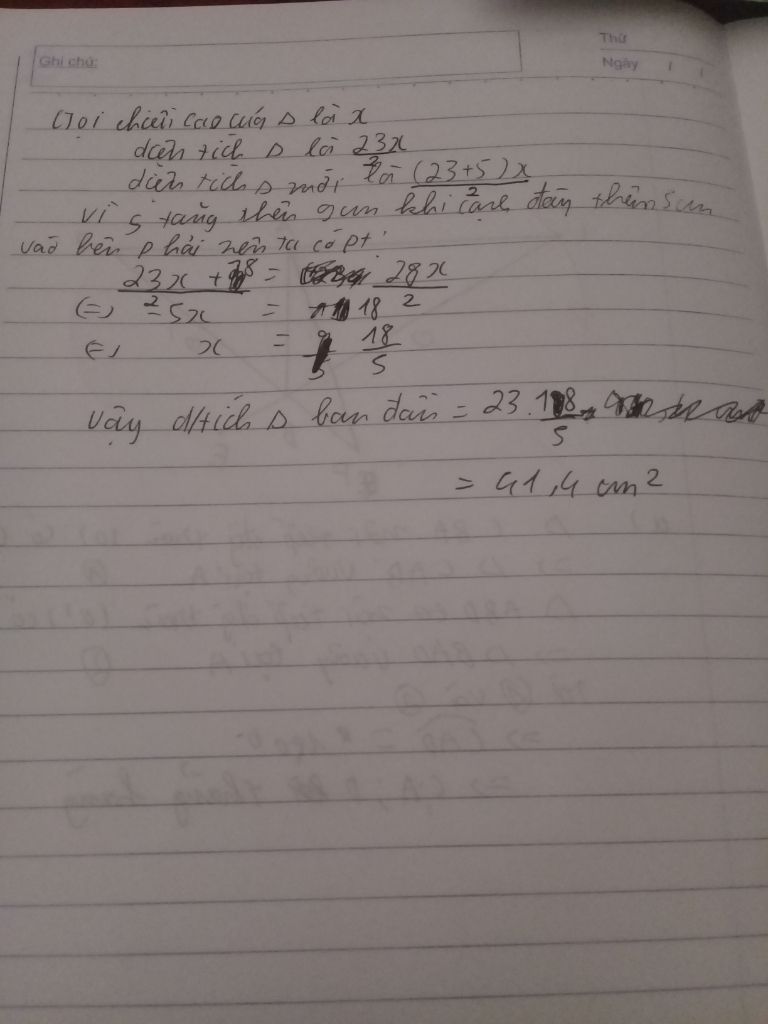 Thứ
Ghi chú:
Ngày / /
Gọi chiều cao của Δ là x
diện tích Δ là 23x/2
diện tích Δ mới là (23+5)x/2
vì S tăng thêm 9cm khi cạnh đáy thêm 5cm
vào bên phải nên ta có pt:
23x + 18 / 2 = 28x / 2
(=) -5x = 18
(=) x = 18/5
Vậy d/tích Δ ban đầu = 23.18/5
= 41,4 cm²